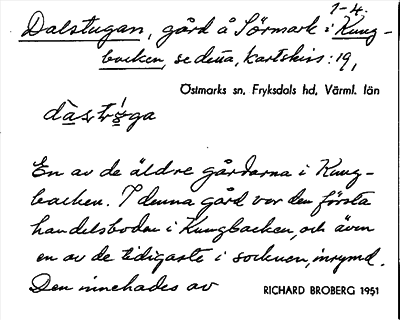 1-4.
Dalstugan, gård å Sörmark i Kung-
backen, se detta, kartskiss: 19,
Östmarks sn, Fryksdals hd, Värml. län
En av de äldre gårdarna i Kung-
backen. I denna gård var den första
handelsboden i Kungbacken, och även
en av de tidigaste i socknen, inrymd.
Den innehades av
RICHARD BROBERG 1951